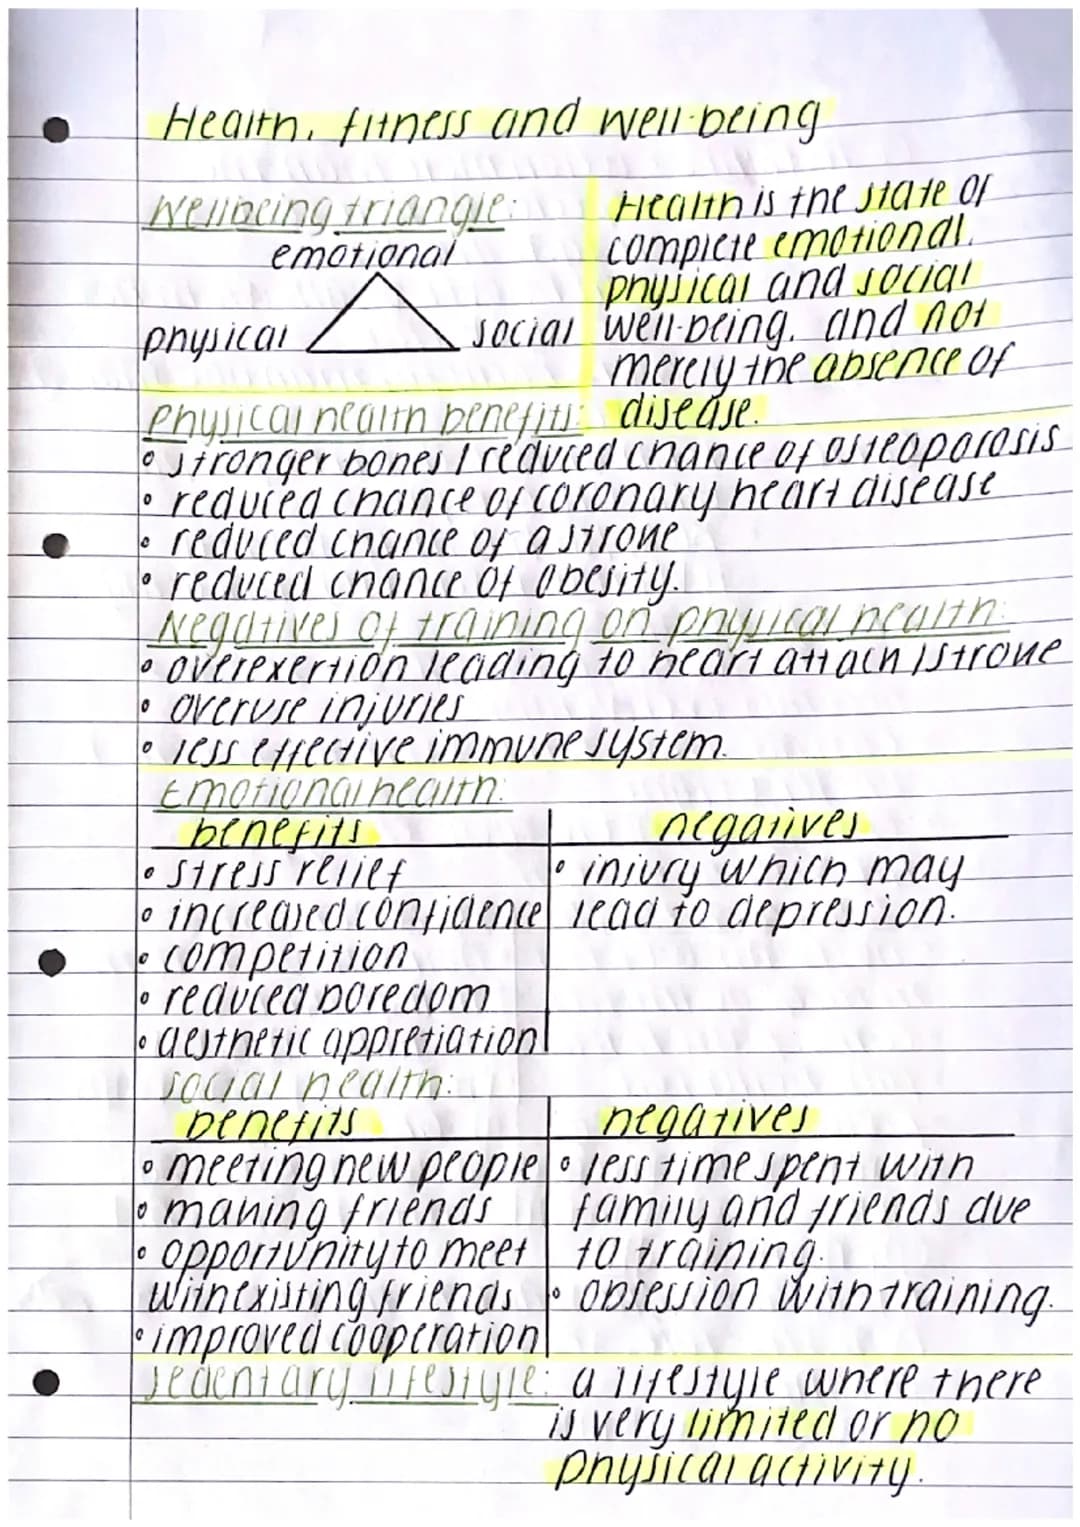 Health, fitness and well-being
Wellbeing triangle:
emotional
physical
social
Health is the state of
complete emotional,
physical and social
well-being, and not
merely the absence of
disease.
Physical health benefits:
• stronger bones / reduced chance of osteoporosis
• reduced chance of coronary heart disease
• reduced chance of a stroke
• reduced chance of obesity.
Negatives of training on physical health:
• overexertion leading to heart attack / stroke
• overuse injuries
• less effective immune system.
Emotional health:
benefits
• stress relief
• increased confidence
• competition
• reduced boredom
• aesthetic appretiation
negatives
• injury which may
lead to depression.
social health:
benefits
• meeting new people
• making friends
• opportunity to meet
with existing friends
• improved cooperation
negatives
• less time spent with
family and friends due
to training.
• obsession with training.
sedentary lifestyle: a lifestyle where there
is very limited or no
physical activity.